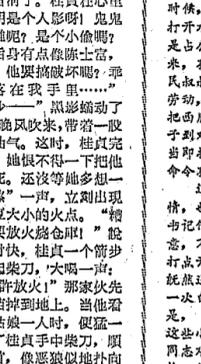 明是个人影呀！鬼鬼
呢？是个小偷嗎？
后身有点像陈士富，
他要搞破坏嗎？乖
在我手里……”
—”黑影蠕动了
晚风吹来，带着一股
油气。这时，桂貞完
她恨不得一下把他
死。还没等她多想一
”一声，立刻出現
豆大小的火点。“糟
要放火燒仓啦！”說
时快，桂貞一个箭步
起柴刀，大喝一声：
許放火！”那家伙先
掉到地上。当他看
姑娘一人时，便猛一
桂貞手中柴刀，順
，像恶狼似地扑向
时候，
打开
是占
来，
民叔
劳动，
把西
子到
当即
命令
情，
书记
意，
打点
既然
一次
是，
这些
同志